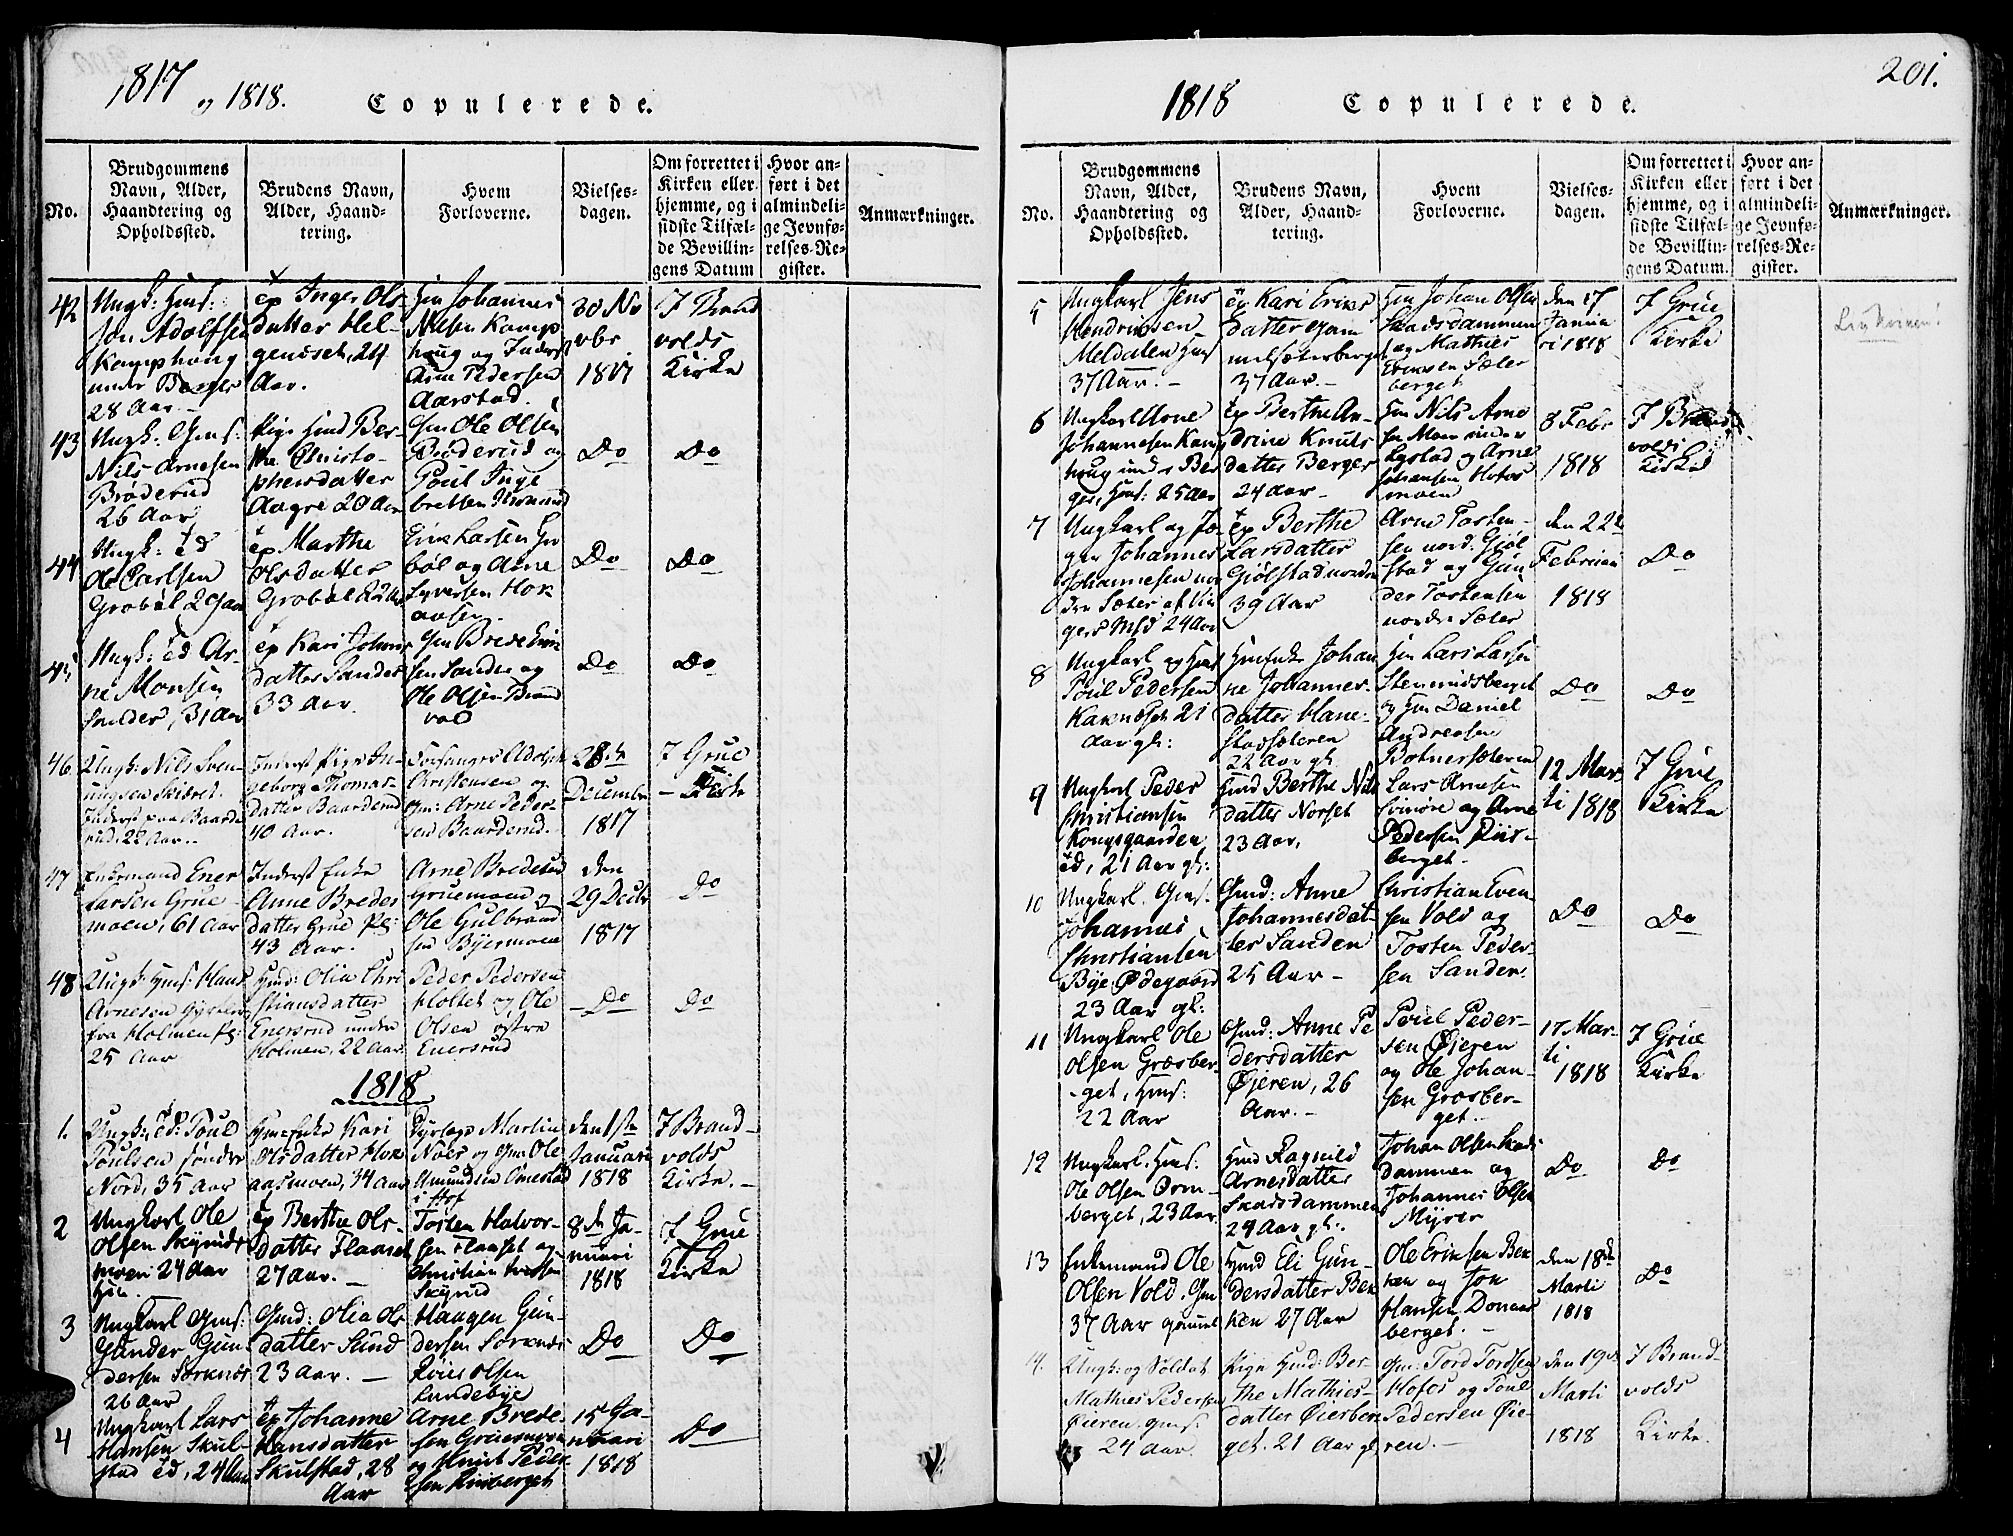 1817 og 1818.
Copulerede.
No.
Brudgommens
Navn, Alder,
Haandtering og
Opholdssted.
Brudens Navn,
Alder, Haand-
tering.
Hvem
Forloverne.
Vielses-
dagen.
Om forrettet i
Kirken eller
hjemme, og i
sidste Tilfæl-
de Bevillin-
gens Datum
Hvor an-
ført i det
almindeli-
ge Jevnfø-
relses-Re-
gister.
Anmærkninger.
42
Ungk: Hms:
Jon Adolfsen
Kamphoug
under Berger
28 Aar.
ep Inger Ols
datter Hel-
geneset, 24
Aar.
Hm Johannes
Nilsen Kamp
houg og Inderst
Arne Pedersen
Aarstad.
30 No
vbr
1817
I Brand
volds
Kirke
43
Ungk: Gms:
Nils Arnesen
Brøderud
26 Aar
Pige Hmd Ber-
the Christo-
phersdatter
Aagre 20 Aar
Gm Ole Olsen
Brøderud og
Poul Inge
bretsen
Do
Do
44
Ungk: ed
Ole Carlsen
Grobøl 29 Aar
ep Marthe
Olsdatter
Grobøl 22 Aar
Eric Larsen Gro
bøl og Arne
Syversen Hok
aasen.
Do
Do
45
Ungk: ed Ar-
ne Monsen
Sander, 31 Aar
ep Kari Johans
datter Sander
33 Aar.
Gm Brede
sen Sander og
Ole Olsen Brand
vold
Do
Do
46
Ungk: Nils Sven-
ungsen
Inderst paa Baarde
rud, 22 Aar.
Inderst pige In-
geborg Thomas-
datter Baarderud
40 Aar.
Forsanger Adolph
Christensen og
Gm: Arne Peder-
sen Baarderud.
28de
Decembr
1817
I Grue
Kirke
47
Enkemand Ener
Larsen Grue-
moen, 61 Aar
Inderst Enke
Anne Bredes
datter Grue Pl:
43 Aar.
Arne Bredesen
Gruemoen og
Ole Gulbrand
sen Byermoen
den
29 Decbr
1817
Do
48
Ungk: Hms: Hans
Arnesen
fra Holmen Pl:
25 Aar
Hmd: Olia Chri
stiansdatter
Enersrud under
Holmen, 22 Aar
Peder Pedersen
Holtet og Ole
Olsen østre
Enersrud
Do
Do
1818
1.
Ungk: ed: Poul
Poulsen søndre
Nord, 35 Aar
Hms Enke Kari
Olsdatter Hok
aasmoen, 44 Aar
Dyrlæge Martin
Noer og Gm Ole
Amundsen Omestad
i Hof
den 1ste
Januari
1818
I Brand-
volds
Kirke.
2
Ungkarl Ole
Olsen Skyrud
moen 24 Aar
Hm.
ep Berthe Ols-
datter Flaaset
27 Aar.
Tosten Halvor-
sen Flaaset og
Christian Iversen
Skyrud
8de Ja-
nuari
1818
I Grue
Kirke
3
Ungkarl Gms:
Gunder Gun-
dersen Sorknæs
26 Aar
Gmd: Olia Ols
datter Sund
23 Aar.
Haagen Gun-
dersen Sorknæs
Olsen
Lundebye
Do
Do
4
Ungkarl Lars
Hansen Skul-
stad ed, 24 Aar
ep Johanne
Hansdatter
Skulstad, 28
Aar
Arne Brede-
sen Gruesmoen
og Knut Peder
sen Riisberget
15 Ja-
nuari
1818
Do
1818
Copulerede.
201.
No.
Brudgommens
Navn, Alder,
Haandtering og
Opholdssted.
Brudens Navn,
Alder, Haand-
tering.
Hvem
Forloverne.
Vielses-
dagen.
Om forrettet i
Kirken eller
hjemme, og i
sidste Tilfæl-
de Bevillin-
gens Datum.
Hvor an-
ført i det
almindeli-
ge Jevnfø-
relses-Re-
gister.
Anmærkninger.
5
Ungkarl Jens
Hendriksen
Meldalen Hms
37 Aar.
ep Kari Eriks
datter Gam
melsæterberget
37 Aar.
Hm Johan Olsen
Skadsdammen
og Mathies
Eriksen Sæter
berget
den 17
Janua
ri 1818
I Grue
Kirke
6
Ungkarl Arne
Johannesen Kamp
houg under Ber
ger, Hms: 25 Aar
ep Berthe An
drine Knuts
datter Berger
24 Aar
Hm Nils Arne
sen Moen under
Opstad og Arne
Johansen Hofos
moen
8 Febr
1818
I Brand
volds
Kirke
7
Ungkarl og Jæ
ger Johannes
Johannesen nor
dre Sæter af Vin
gers Mfd 24 Aar
ep Berthe
Larsdatter
Gjølstad nordre
39 Aar
Arne Tosten-
sen nord: Gjøl
stad og Gun
der Tostensen
nordre Sæter
den 22de
Februari
1818
Do
8
Ungkarl og Hms
Poul Pedersen
Karnoset 21
Aar gl:
Hms Enke Johan
ne Johannes-
datter Hane-
stadsæteren
22 Aar gl.
Hm Lars Larsen
Stemmidsberget
og Hm Daniel
Andreasen
Botnersæteren
Do
Do
9
Ungkarl Peder
Christiansen
Kongsgaarden
ed, 21 Aar gl:
Hmd Berthe Nils
datter Norset
23 Aar.
Lars Arnesen
Svinøre og Arne
Pedersen Riis-
berget.
12 Mar
ti 1818
I Grue
Kirke
10
Ungkarl. Gms.
Johannes
Christiansen
Bye Ødegaard
23 Aar gl:
Gmd: Anne
Johannesdat-
ter Sanden
25 Aar
Christian Even-
sen Vold og
Tosten Peder-
sen Sander.
Do
Do
11
Ungkarl Ole
Olsen Græsber-
get, Hms:
22 Aar
Gmd: Anne Pe
dersdatter
Øieren, 26
Aar.
Poul Peder-
sen Øieren
og Ole Johan-
sen Græsber-
get.
17 Mar-
ti
1818
I Grue
Kirke
12
Ungkarl. Hms.
Ole Olsen Orm-
berget, 23 Aar
Hmd Ragnild
Arnesdatter
Skadsdammen
24 Aar gl:
Johan Olsen Skads
dammen og
Johannes Olsen
Myrer
Do
Do
13
Enkemand Ole
Olsen Vold, Gm
37 Aar gammel
Hmd Eli Gun-
dersdatter Ben
ken 27 Aar
Ole Eriksen Ben
ken og Jon
Hansen Donner
berget.
den 18de
Marti
1818
Do
14.
Ungk: og Soldat
Mathies Pedersen
Øieren. Gms:
24 Aar
Pige Hmd: Ber-
the Mathies-
datter Øierber-
get. 21 Aar gl.
Gm: Tord Tordsen
Hofos og Poul
Pedersen Øie-
ren.
den 19de
Marti
1818
I Brand-
volds
Kirke.